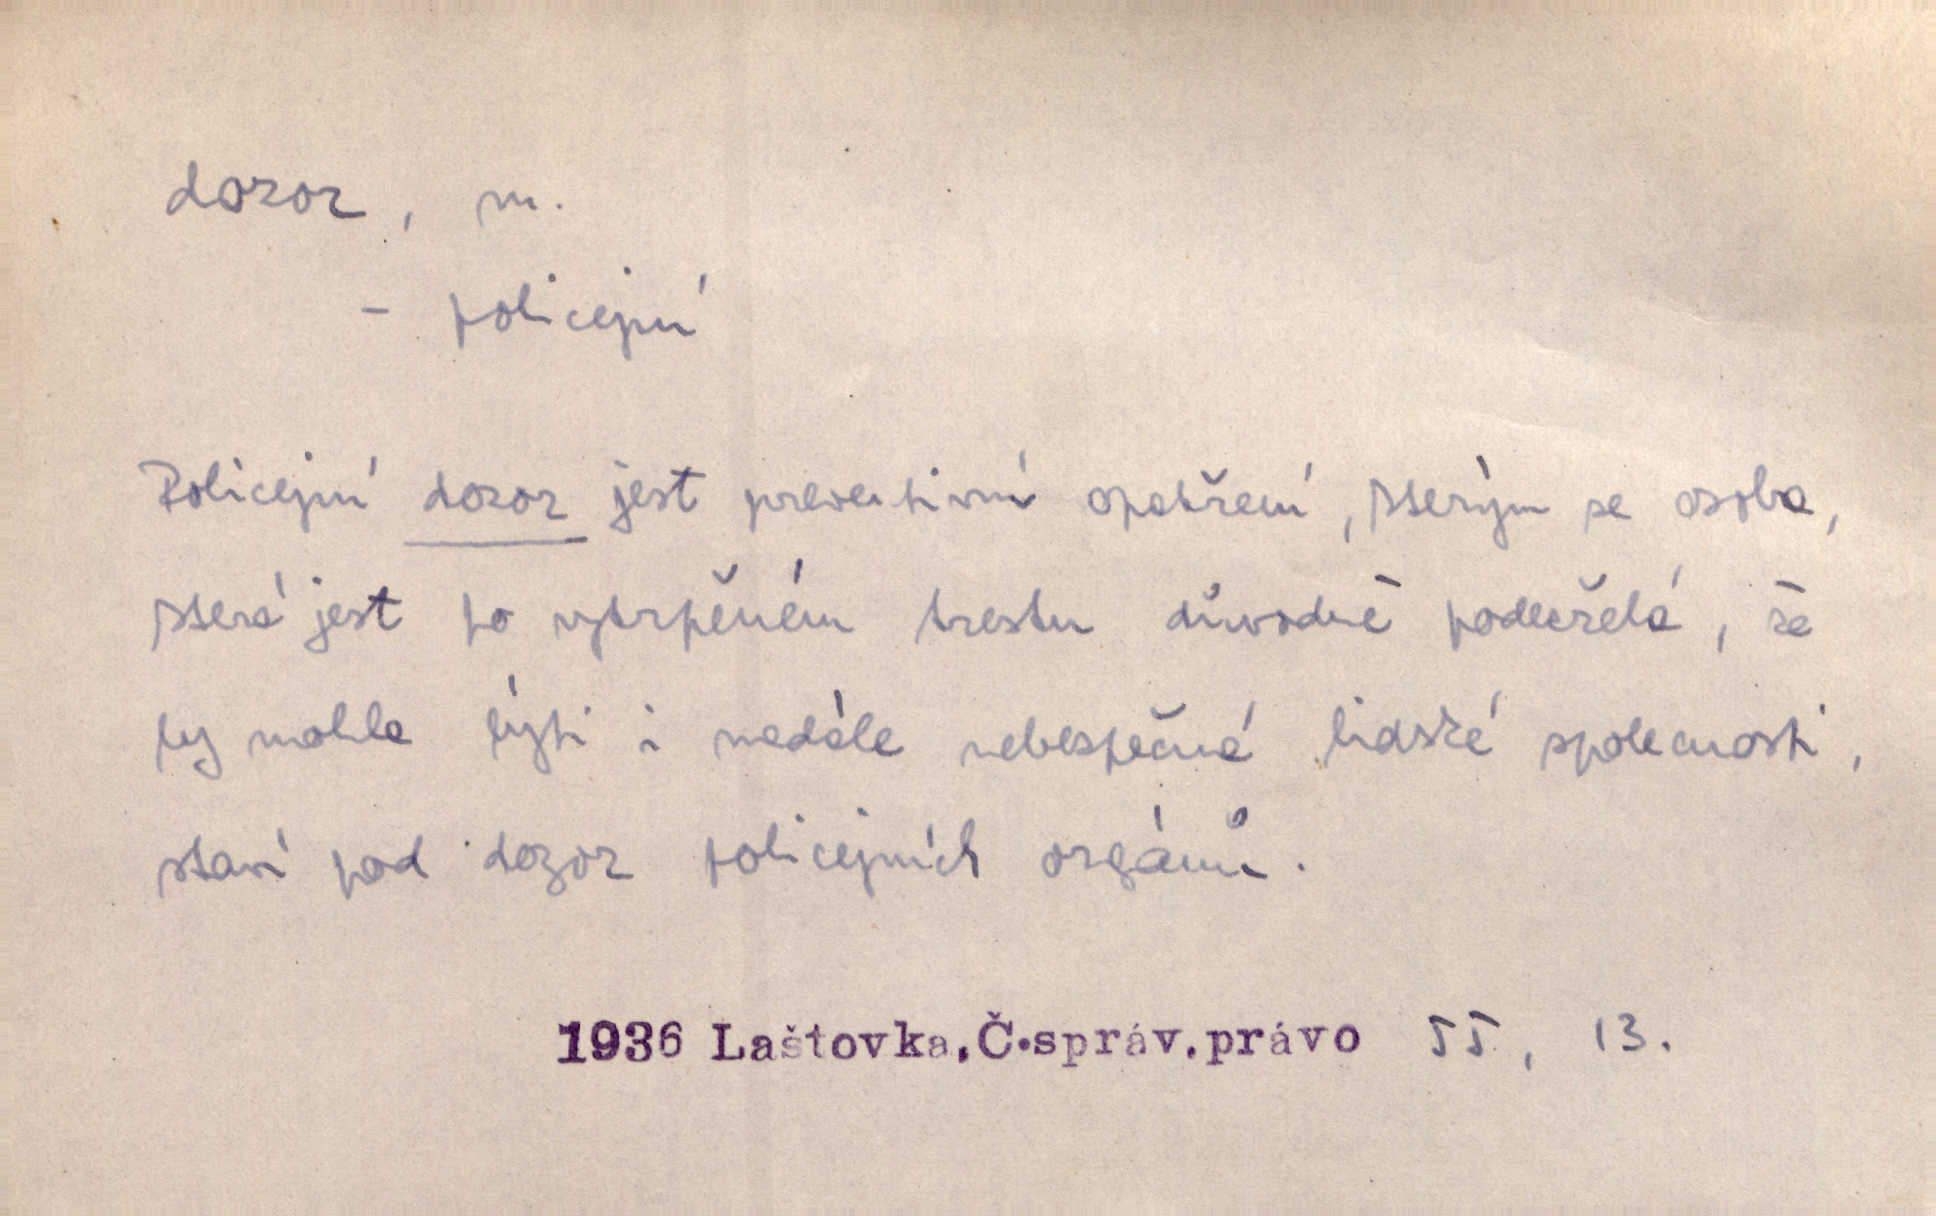 dozor, m.
- policejní
Policejní dozor jest preventivní opatření, kterým se osoba,
která jest po vytrpěném trestu důvodně podezřelá, že
by mohla býti i nadále nebezpečná lidské společnosti,
staví pod dozor policejních orgánů.
1936 Laštovka,Č.správ.právo 55, 13.